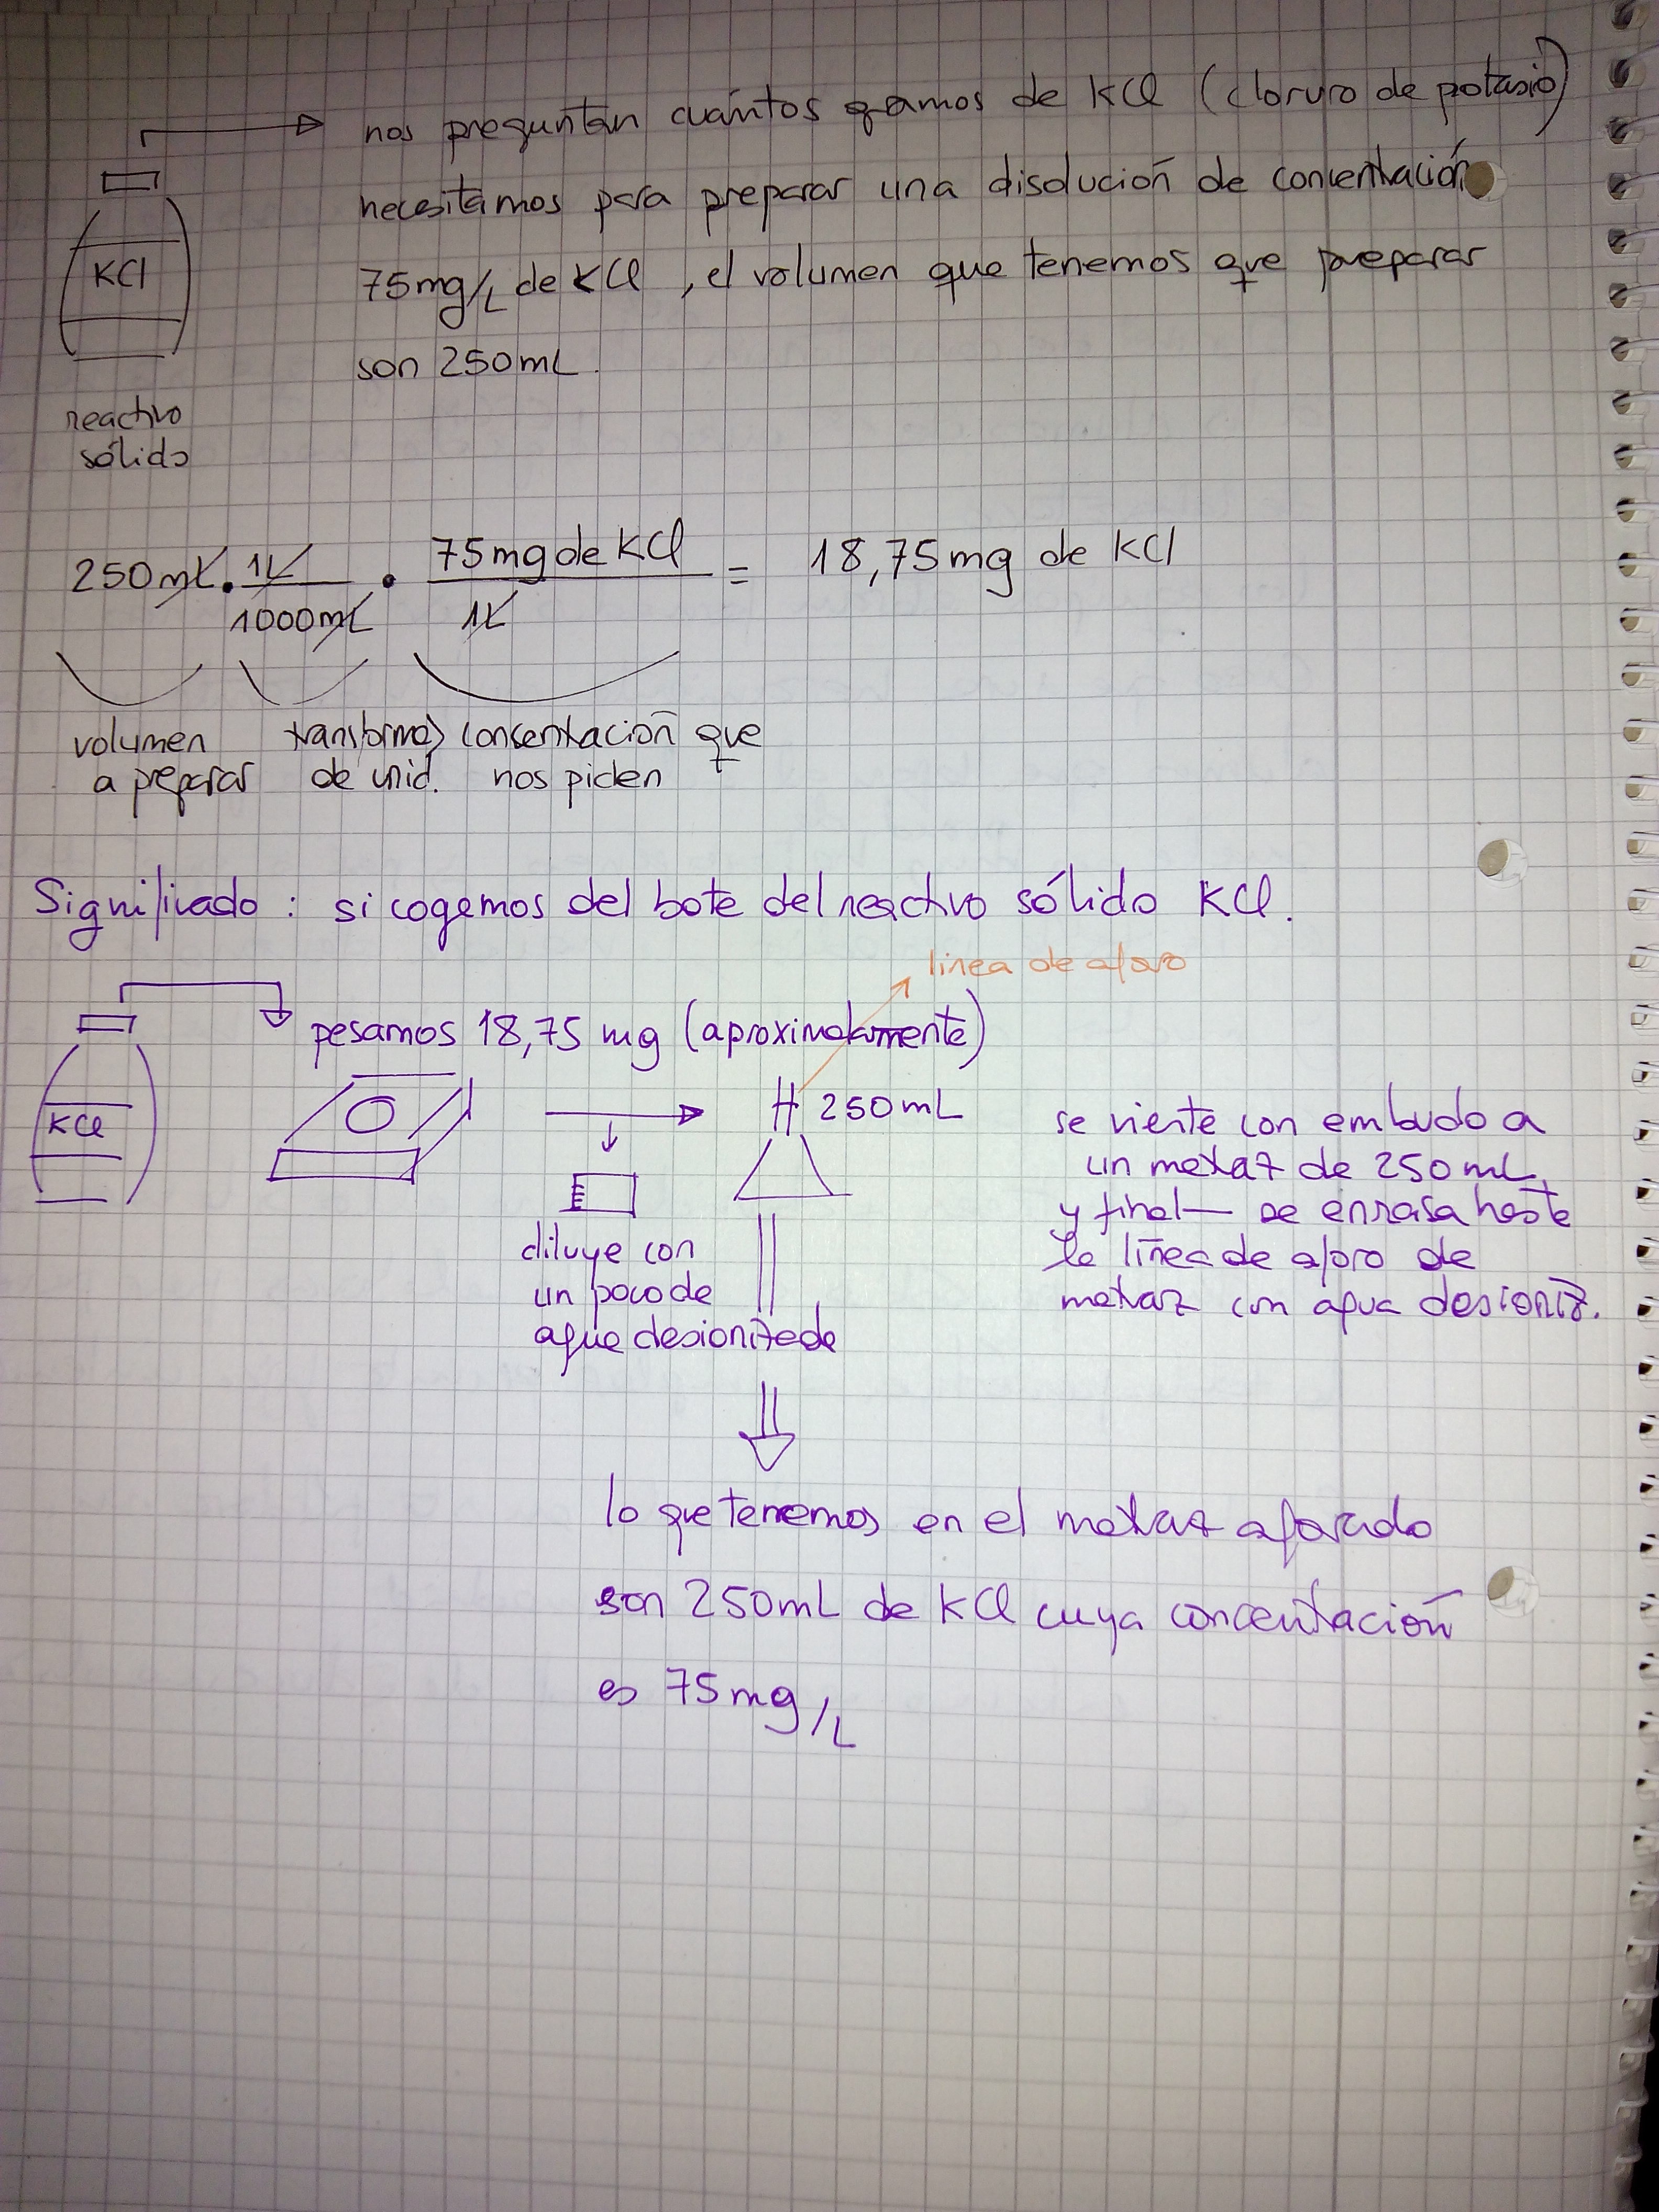 nos preguntan cuántos gramos de KCl (cloruro de potasio)
necesitamos para preparar una disolución de concentración
75mg/L de KCl, el volumen que tenemos que preparar
son 250mL.
KCl
reactivo
sólido
250mL · 1L / 1000mL · 75mg de KCl / 1L = 18,75mg de KCl
volumen
a preparar
transformas
de unid.
consentración que
nos piden
Significado: si cogemos del bote del reactivo sólido KCl.
linea de aforo
pesamos 18,75 mg (aproximadamente)
KCl
250mL
diluye con
un poco de
agua desionizada
se vierte con embudo a
un matraz de 250mL,
y final— se enrasa hasta
la línea de aforo de
matraz con agua desioniz.
lo que tenemos en el matraz aforado
son 250mL de KCl cuya concentración
es 75mg/L